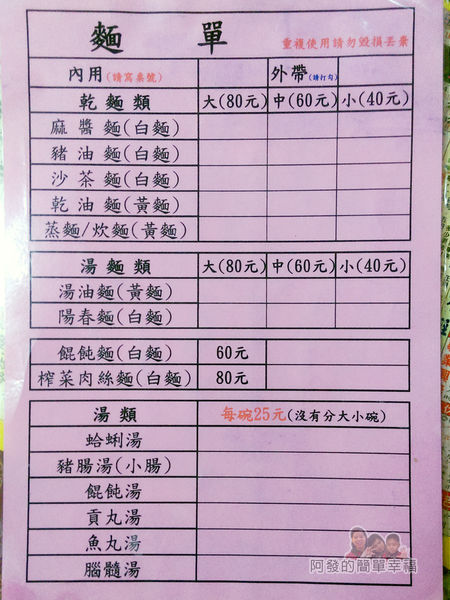 麵 單 重複使用請勿毀損丟棄
內用(請寫桌號) 外帶(請打勾)
乾麵類 大(80元) 中(60元) 小(40元)
麻醬麵(白麵)
豬油麵(白麵)
沙茶麵(白麵)
乾油麵(黃麵)
蒸麵/炊麵(黃麵)
湯麵類 大(80元) 中(60元) 小(40元)
湯油麵(黃麵)
陽春麵(白麵)
餛飩麵(白麵) 60元
榨菜肉絲麵(白麵) 80元
湯類 每碗25元(沒有分大小碗)
蛤蜊湯
豬腸湯(小腸)
餛飩湯
貢丸湯
魚丸湯
腦髓湯
阿發的簡單幸福